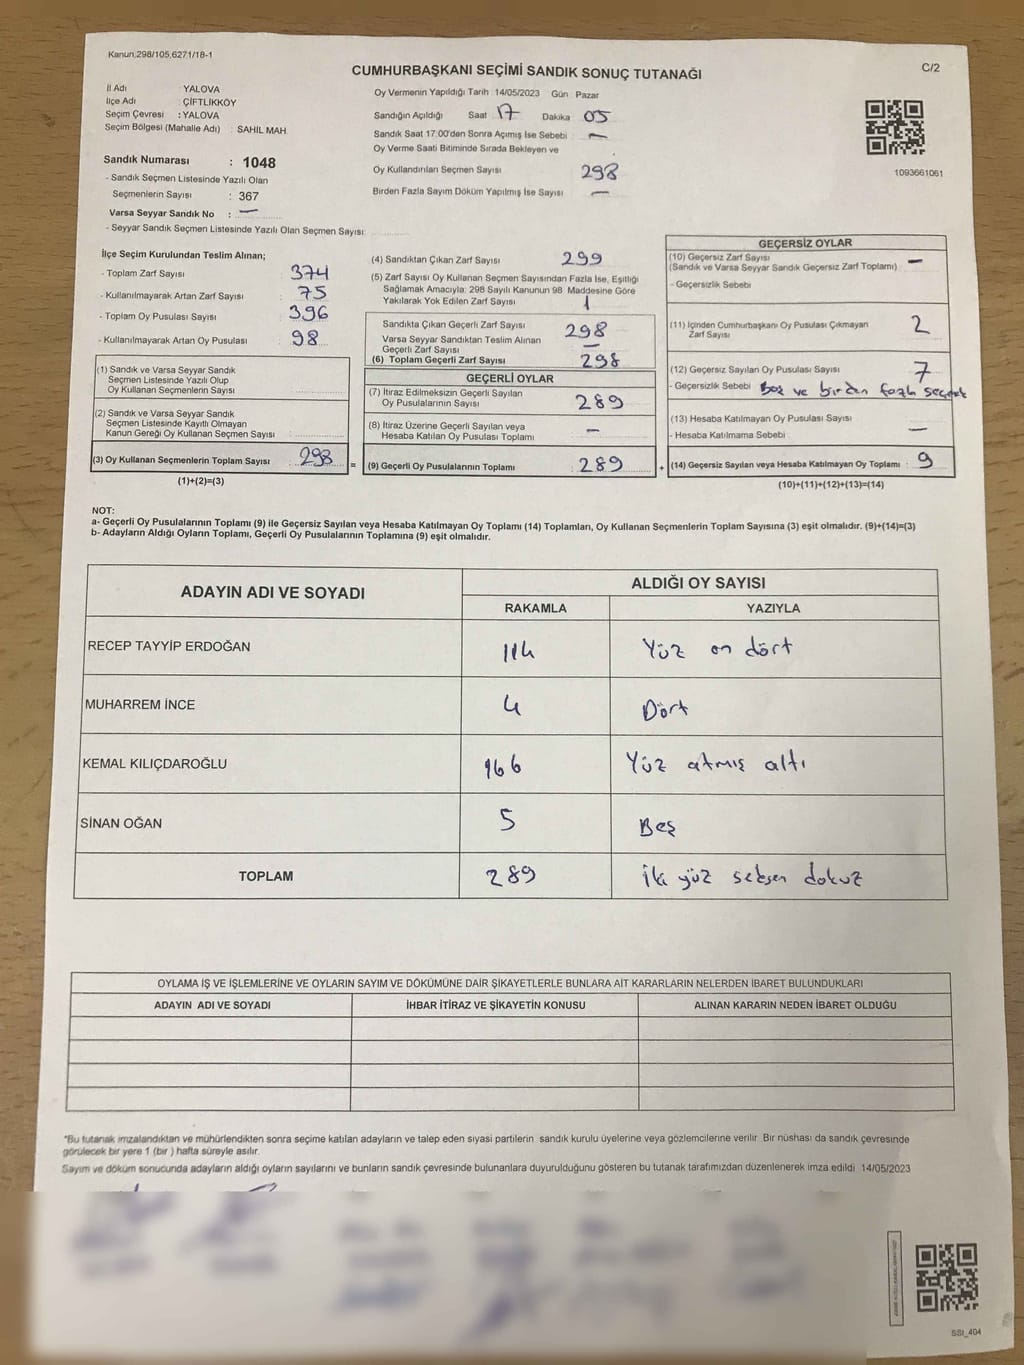 Kanun;298/105;6271/18-1
C/2
CUMHURBAŞKANI SEÇİMİ SANDIK SONUÇ TUTANAĞI
İl Adı : YALOVA
İlçe Adı : ÇİFTLİKKÖY
Seçim Çevresi : YALOVA
Seçim Bölgesi (Mahalle Adı) : SAHİL MAH.
Sandık Numarası : 1048
- Sandık Seçmen Listesinde Yazılı Olan
Seçmenlerin Sayısı : 367
Varsa Seyyar Sandık No : —
- Seyyar Sandık Seçmen Listesinde Yazılı Olan Seçmen Sayısı:
Oy Vermenin Yapıldığı Tarih : 14/05/2023 Gün : Pazar
Sandığın Açıldığı Saat 17 Dakika 05
Sandık Saat 17:00'den Sonra Açımış İse Sebebi : —
Oy Verme Saati Bitiminde Sırada Bekleyen ve
Oy Kullandırılan Seçmen Sayısı 298
Birden Fazla Sayım Döküm Yapılmış İse Sayısı —
1093661061
İlçe Seçim Kurulundan Teslim Alınan;
- Toplam Zarf Sayısı : 374
- Kullanılmayarak Artan Zarf Sayısı : 75
- Toplam Oy Pusulası Sayısı : 396
- Kullanılmayarak Artan Oy Pusulası : 98
(1) Sandık ve Varsa Seyyar Sandık
Seçmen Listesinde Yazılı Olup
Oy Kullanan Seçmenlerin Sayısı :
(2) Sandık ve Varsa Seyyar Sandık
Seçmen Listesinde Kayıtlı Olmayan
Kanun Gereği Oy Kullanan Seçmen Sayısı :
(3) Oy Kullanan Seçmenlerin Toplam Sayısı : 298
(1)+(2)=(3)
(4) Sandıktan Çıkan Zarf Sayısı : 299
(5) Zarf Sayısı Oy Kullanan Seçmen Sayısından Fazla İse, Eşitliği
Sağlamak Amacıyla; 298 Sayılı Kanunun 98. Maddesine Göre
Yakılarak Yok Edilen Zarf Sayısı : 1
Sandıkta Çıkan Geçerli Zarf Sayısı : 298
Varsa Seyyar Sandıktan Teslim Alınan
Geçerli Zarf Sayısı : —
(6) Toplam Geçerli Zarf Sayısı : 298
GEÇERLİ OYLAR
(7) İtiraz Edilmeksizin Geçerli Sayılan
Oy Pusulalarının Sayısı : 289
(8) İtiraz Üzerine Geçerli Sayılan veya
Hesaba Katılan Oy Pusulası Toplamı : —
= (9) Geçerli Oy Pusulalarının Toplamı : 289
GEÇERSİZ OYLAR
(10) Geçersiz Zarf Sayısı —
(Sandık ve Varsa Seyyar Sandık Geçersiz Zarf Toplamı)
- Geçersizlik Sebebi
(11) İçinden Cumhurbaşkanı Oy Pusulası Çıkmayan 2
Zarf Sayısı
(12) Geçersiz Sayılan Oy Pusulası Sayısı : 7
- Geçersizlik Sebebi Boş ve birden fazla seçmek
(13) Hesaba Katılmayan Oy Pusulası Sayısı : —
- Hesaba Katılmama Sebebi
+ (14) Geçersiz Sayılan veya Hesaba Katılmayan Oy Toplamı : 9
(10)+(11)+(12)+(13)=(14)
NOT:
a- Geçerli Oy Pusulalarının Toplamı (9) ile Geçersiz Sayılan veya Hesaba Katılmayan Oy Toplamı (14) Toplamları, Oy Kullanan Seçmenlerin Toplam Sayısına (3) eşit olmalıdır. (9)+(14)=(3)
b- Adayların Aldığı Oyların Toplamı, Geçerli Oy Pusulalarının Toplamına (9) eşit olmalıdır.
ADAYIN ADI VE SOYADI ALDIĞI OY SAYISI
RAKAMLA YAZIYLA
RECEP TAYYİP ERDOĞAN 114 Yüz on dört
MUHARREM İNCE 4 Dört
KEMAL KILIÇDAROĞLU 166 Yüz atmış altı
SİNAN OĞAN 5 Beş
TOPLAM 289 İki yüz seksen dokuz
OYLAMA İŞ VE İŞLEMLERİNE VE OYLARIN SAYIM VE DÖKÜMÜNE DAİR ŞİKAYETLERLE BUNLARA AİT KARARLARIN NELERDEN İBARET BULUNDUKLARI
ADAYIN ADI VE SOYADI İHBAR İTİRAZ VE ŞİKAYETİN KONUSU ALINAN KARARIN NEDEN İBARET OLDUĞU
"Bu tutanak imzalandıktan ve mühürlendikten sonra seçime katılan adayların ve talep eden siyasi partilerin sandık kurulu üyelerine veya gözlemcilerine verilir. Bir nüshası da sandık çevresinde
görülecek bir yere 1 (bir ) hafta süreyle asılır.
Sayım ve döküm sonucunda adayların aldığı oyların sayılarını ve bunların sandık çevresinde bulunanlara duyurulduğunu gösteren bu tutanak tarafımızdan düzenlenerek imza edildi. 14/05/2023
SSI_404